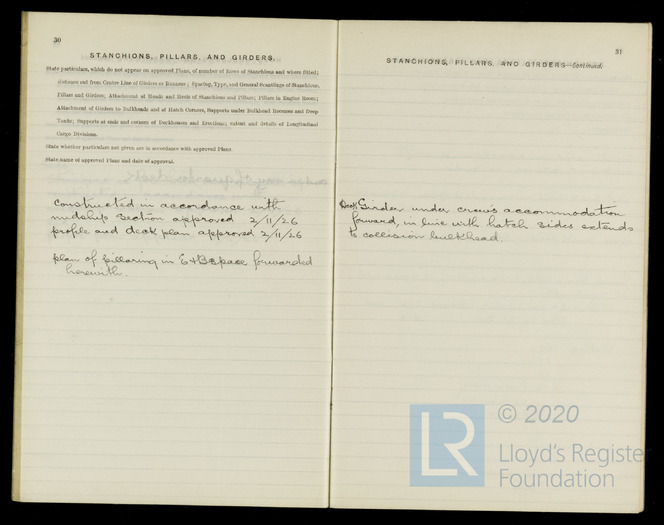 30
STANCHIONS, PILLARS, AND GIRDERS.
State particulars, which do not appear on approved Plans, of number of Rows of Stanchions and where fitted;
distance out from Centre Line of Girders or Runners; Spacing, Type, and General Scantlings of Stanchions,
Pillars and Girders; Attachment at Heads and Heels of Stanchions and Pillars; Pillars in Engine Room;
Attachment of Girders to Bulkheads and at Hatch Corners, Supports under Bulkhead Recesses and Deep
Tanks; Supports at ends and corners of Deckhouses and Erections; extent and details of Longitudinal
Cargo Divisions.
State whether particulars not given are in accordance with approved Plans.
State name of approved Plans and date of approval.
Constructed in accordance with
midship section approved 2/11/26
profile and deck plan approved 2/11/26
plan of pillaring in E+B space forwarded
herewith.
31
STANCHIONS, PILLARS, AND GIRDERS—continued.
Girder under crew's accommodation
forward, in line with hatch sides extends
to collision bulkhead.
LR
© 2020
Lloyd's Register
Foundation